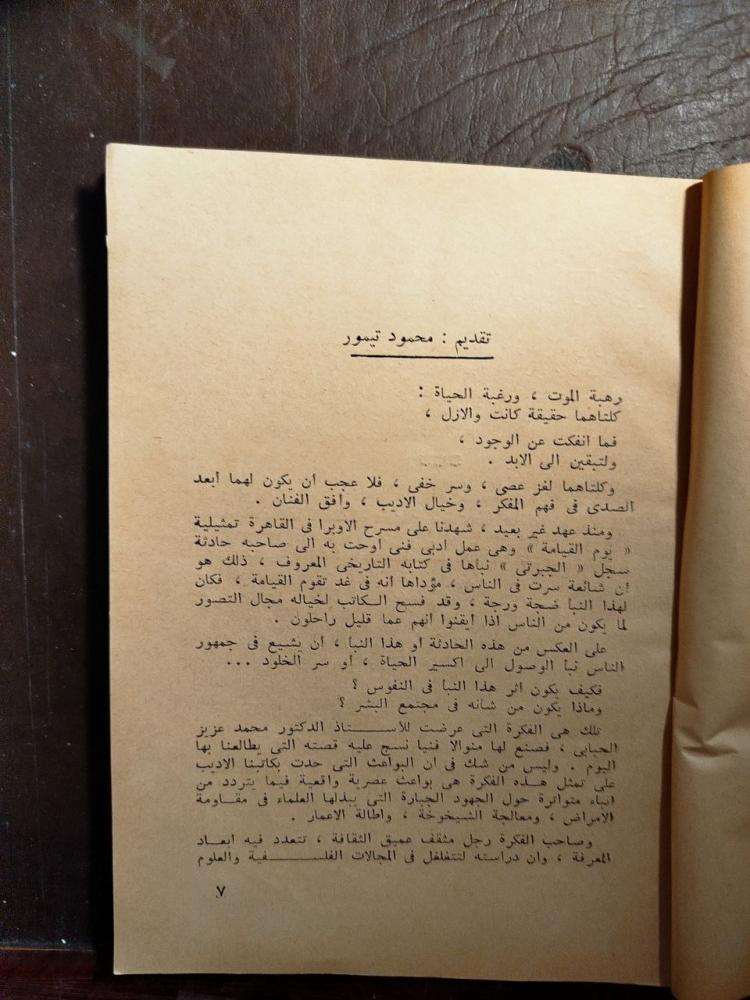 تقديم : محمود تيمور
رهبة الموت ، ورغبة الحياة :
كلتاهما حقيقة كانت والازل ،
فما انفكت عن الوجود ،
ولتبقين الى الابد .
وكلتاهما لغز عصى ، وسر خفى ، فلا عجب ان يكون لهما أبعد
الصدى فى فهم المفكر ، وخيال الاديب ، وأفق الفنان .
ومنذ عهد غير بعيد ، شهدنا على مسرح الاوبرا فى القاهرة تمثيلية
« يوم القيامة » وهى عمل ادبى فنى اوحت به الى صاحبه حادثة
سجل « الجبرتى » نبأها فى كتابه التاريخى المعروف ، ذلك هو
ان شائعة سرت فى الناس ، مؤداها انه فى غد تقوم القيامة ، فكان
لهذا النبأ ضجة ورجة ، وقد فسح الكاتب لخياله مجال التصور
لما يكون من الناس اذا أيقنوا انهم عما قليل راحلون .
على العكس من هذه الحادثة أو هذا النبأ ، أن يشيع فى جمهور
الناس نبأ الوصول الى اكسير الحياة ، أو سر الخلود ...
فكيف يكون اثر هذا النبأ فى النفوس ؟
وماذا يكون من شانه فى مجتمع البشر ؟
تلك هى الفكرة التى عرضت للأستاذ الدكتور محمد عزيز
الحبابى ، فصنع لها منوالا فنيا نسج عليه قصته التى يطالعنا بها
اليوم . وليس من شك فى ان البواعث التى حدت بكاتبنا الاديب
على تمثل هذه الفكرة هى بواعث عصرية واقعية فيما يتردد من
انباء متواترة حول الجهود الجبارة التى يبذلها العلماء فى مقاومة
الامراض ، ومعالجة الشيخوخة ، واطالة الاعمار .
وصاحب الفكرة رجل مثقف عميق الثقافة ، تتعدد فيه ابعاد
المعرفة ، وان دراسته لتتغلغل فى المجالات الفلسفية والعلوم
٧